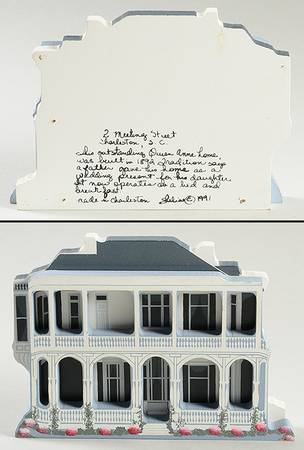 2 Meeting Street
Charleston, S.C.
This outstanding Queen Anne home,
was built in 1892. Tradition says
a father gave his home as a
wedding present for his daughter.
It now operates as a bed and
breakfast.
made in Charleston © 1991